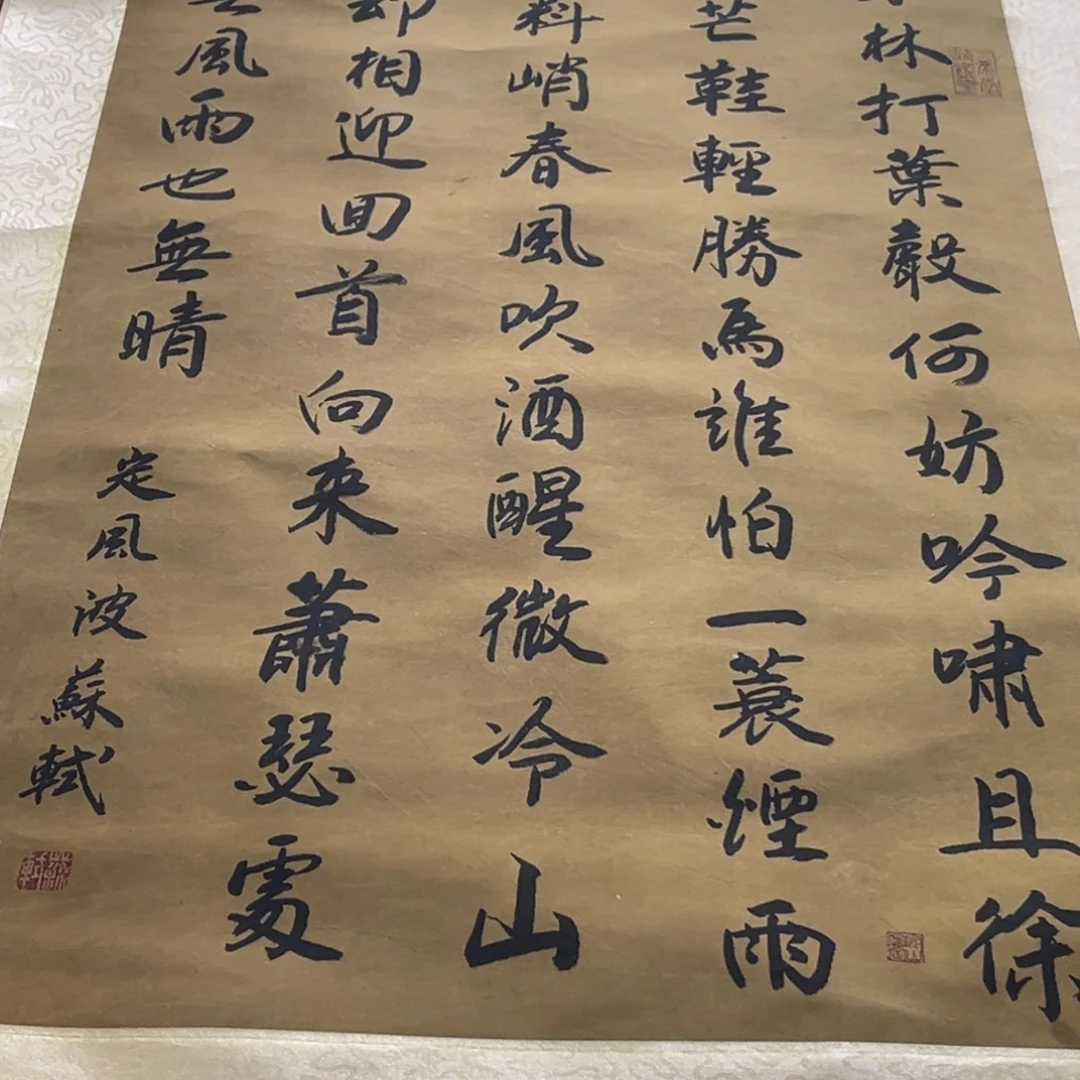 林打葉聲何妨吟嘯且徐
芒鞋輕勝馬誰怕一蓑煙雨
料峭春風吹酒醒微冷山
却相迎回首向来蕭瑟處
風雨也無晴
定風波蘇軾